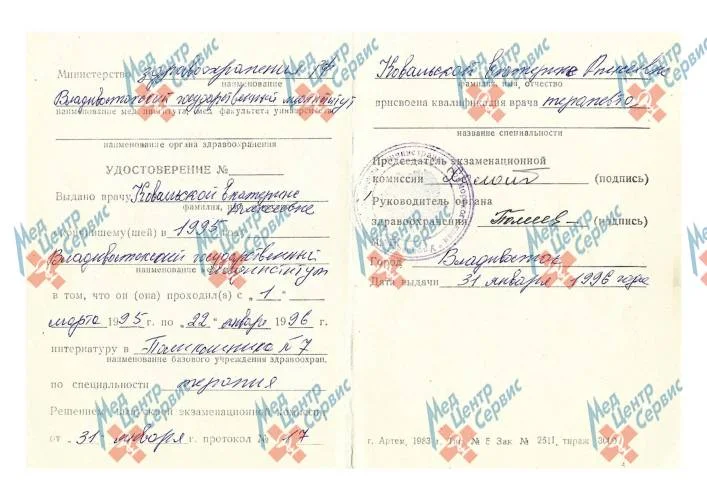 Министерство здравоохранения РФ
наименование
Владивостокский государственный мединститут
наименование мединститута, мед. факультета университета
наименование органа здравоохранения
УДОСТОВЕРЕНИЕ №
Выдано врачу Ковальской Екатерине
фамилия, имя,
Алексеевне
окончившему(шей) в 1995 году
Владивостокский государственный
наименование
мединститут
в том, что он (она) проходил(а) с „1"
марта 1995 г. по „22" января 1996 г.
интернатуру в Поликлиника №7
наименование базового учреждения здравоохран.
по специальности терапия
Решением экзаменационной комиссии
от „31" января г. протокол № 17
Ковальской Екатерине Алексеевне
фамилия, имя, отчество
присвоена квалификация врача терапевта
название специальности
Председатель экзаменационной
комиссии (подпись)
Руководитель органа
здравоохранения (подпись)
Город Владивосток
Дата выдачи 31 января 1996 года
г. Артем, 1983 г. Тип. № 5 Зак № 2511, тираж 3000
Мед Центр Сервис